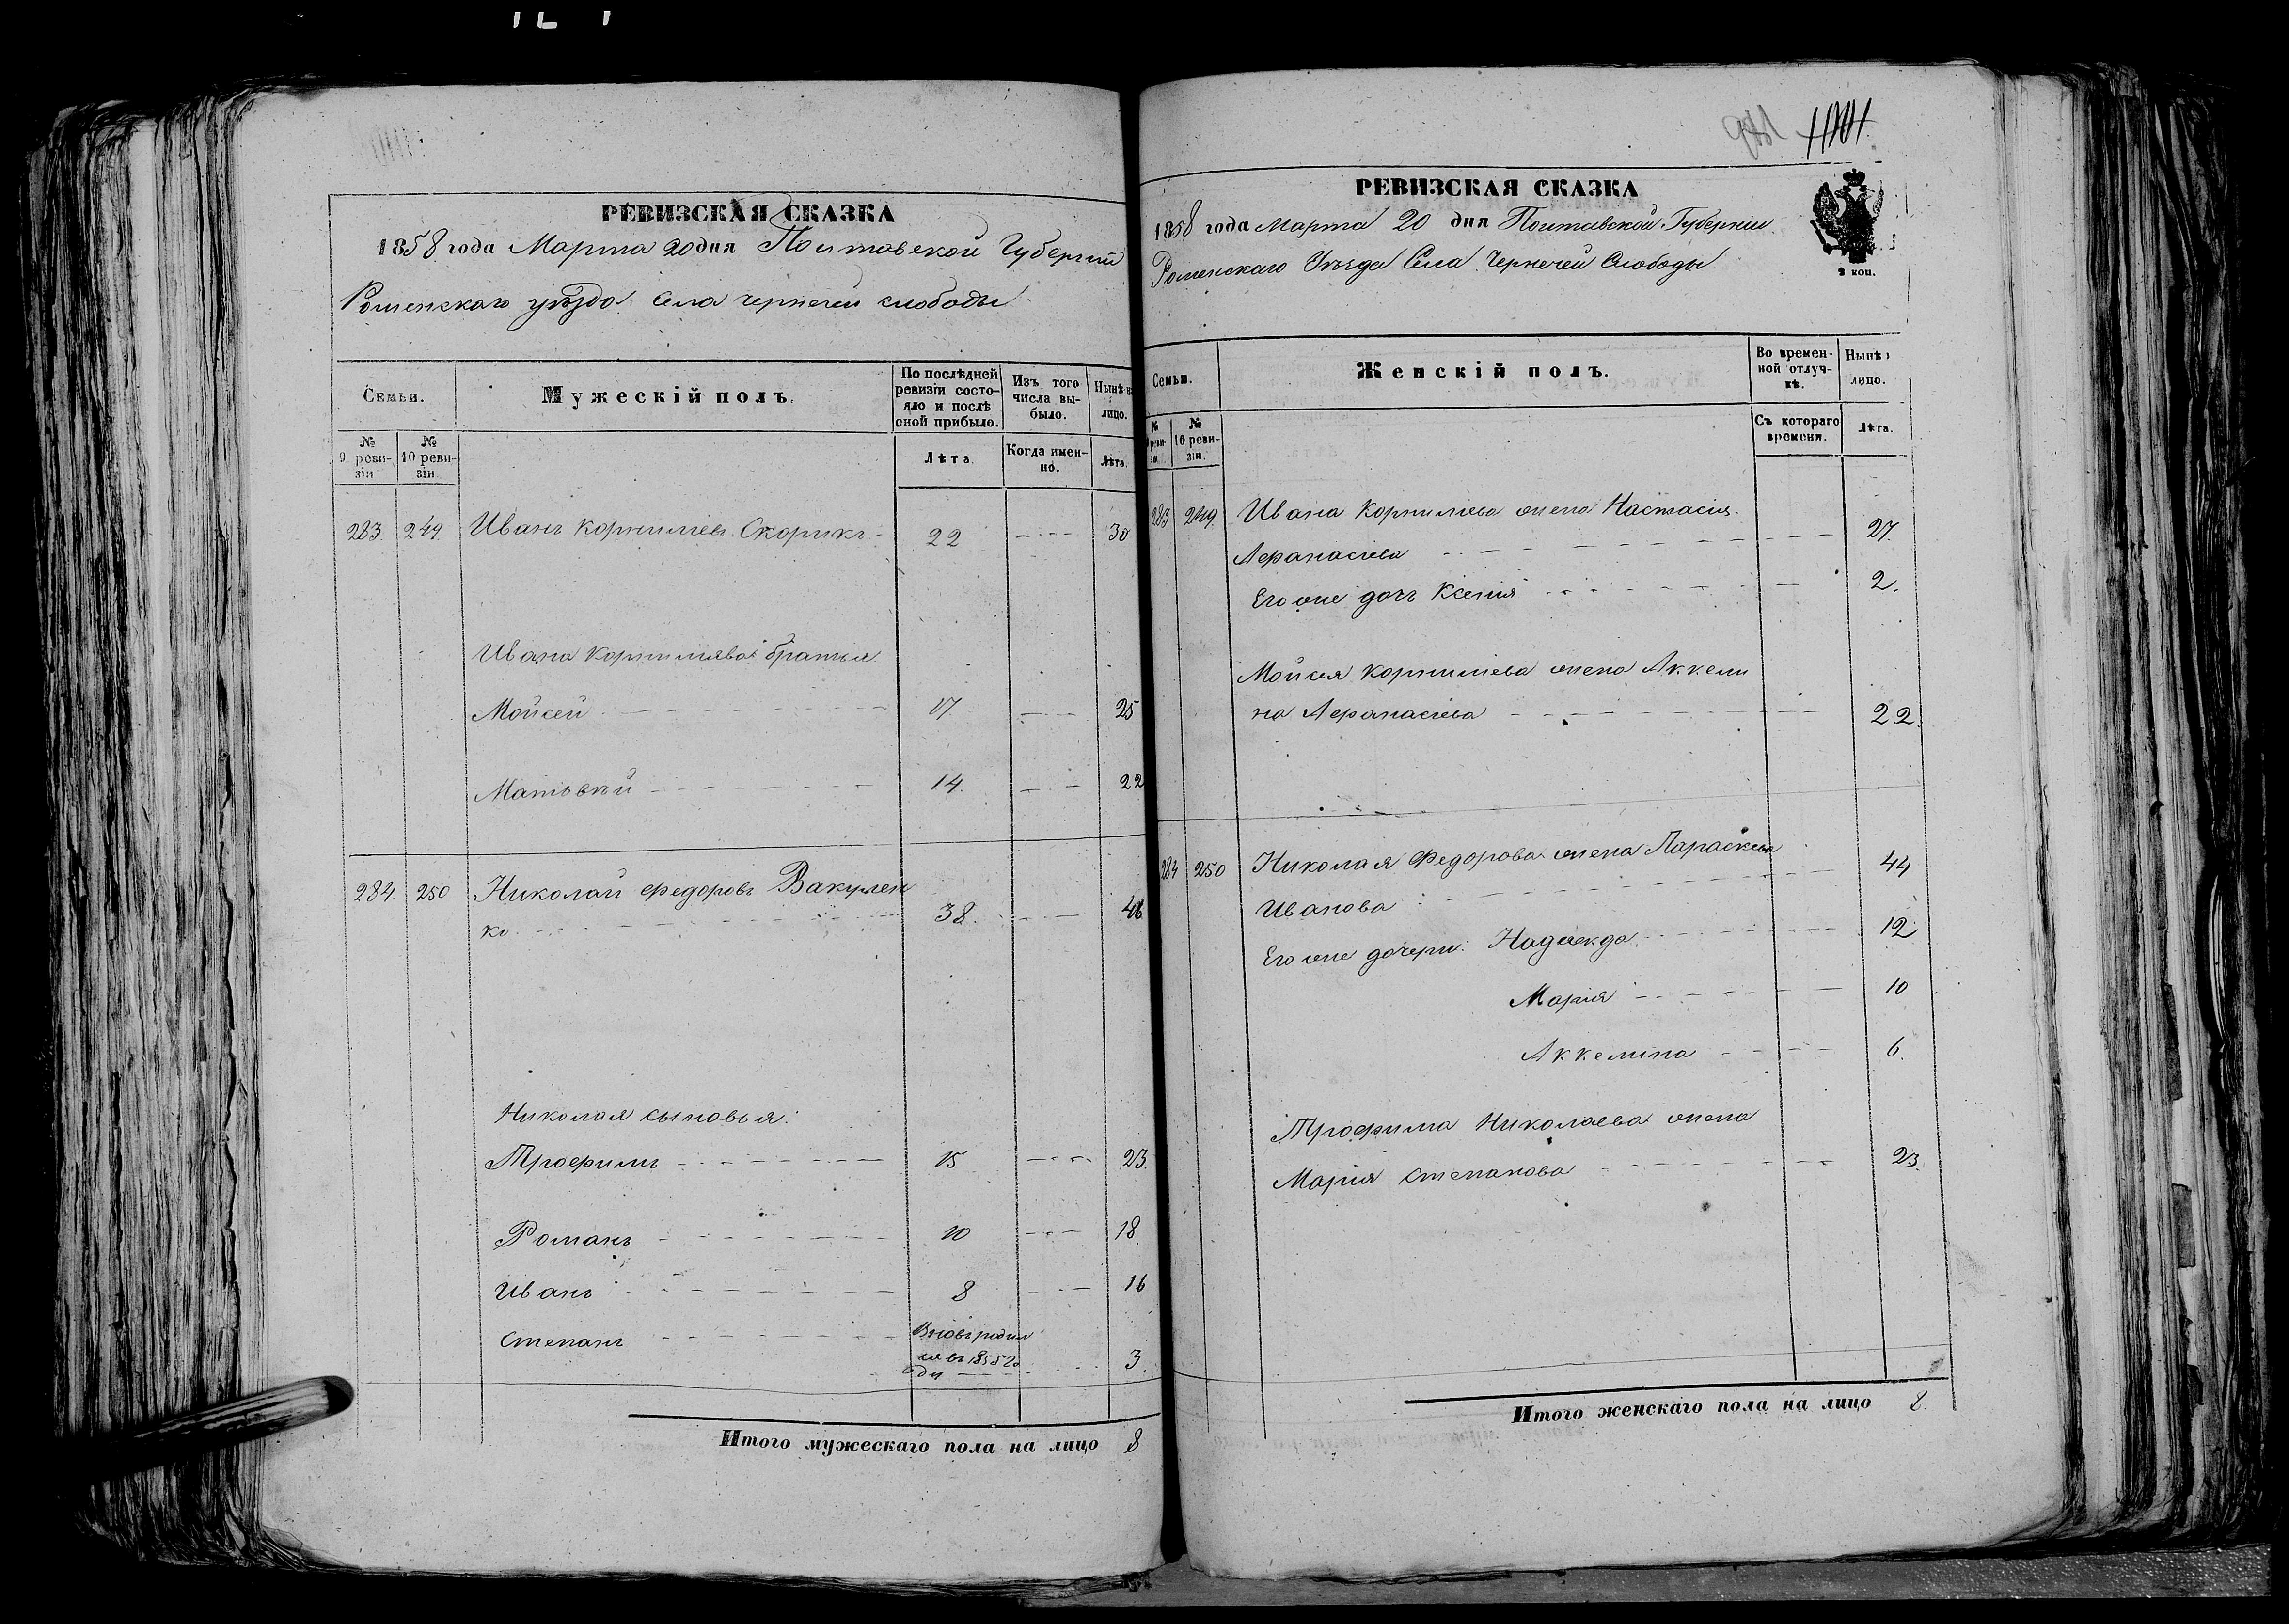 РЕВИЗСКАЯ СКАЗКА
1858 года Марта 20 дня Полтавской Губернии
Роменскаго уѣзда Села чернечей слободы
Семьи.
Мужескій полъ.
По послѣдней ревизіи состояло и послѣ оной прибыло.
Изъ того числа выбыло.
Нынѣ на лицо.
№ 9 ревизіи
№ 10 ревизіи
Лѣта.
Когда именно.
Лѣта.
283. 249. Иванъ Корнилиевъ Скорикъ 22 30
Ивана Корнилиева братья
Мойсей 17 25
Матьвѣй 14. 22
284. 250 Николай Федоровъ Вакулен
ко 38. 46
Николая сыновья:
Трофимъ 15 23.
Романъ 10 18
Иванъ 8 16
Степанъ Вновь родил
ся въ 1855 го
ду 3.
Итого мужескаго пола на лицо 8
981 1101
РЕВИЗСКАЯ СКАЗКА
1858 года Марта 20 дня Полтавской Губернии
Роменскаго Уѣзда Села Чернечей Слободы
2 коп.
Семьи.
Женскій полъ.
Во временной отлучкѣ.
Нынѣ
лицо.
№ реви-
зіи
№ 10 ревизіи.
Съ котораго времени.
Лѣта.
283 249. Ивана Корнилиева жена Настасия
Афанасиева 27.
Его же дочь Ксения 2.
Мойсея Корнилиева жена Аккели
на Афанасиева 22.
284 250 Николая Федорова жена Параскева
Иванова 44
Его же дочери: Надежда 12
Мария 10
Аккелина 6.
Трофима Николаева жена
Мария Степанова 23.
Итого женскаго пола на лицо 8.